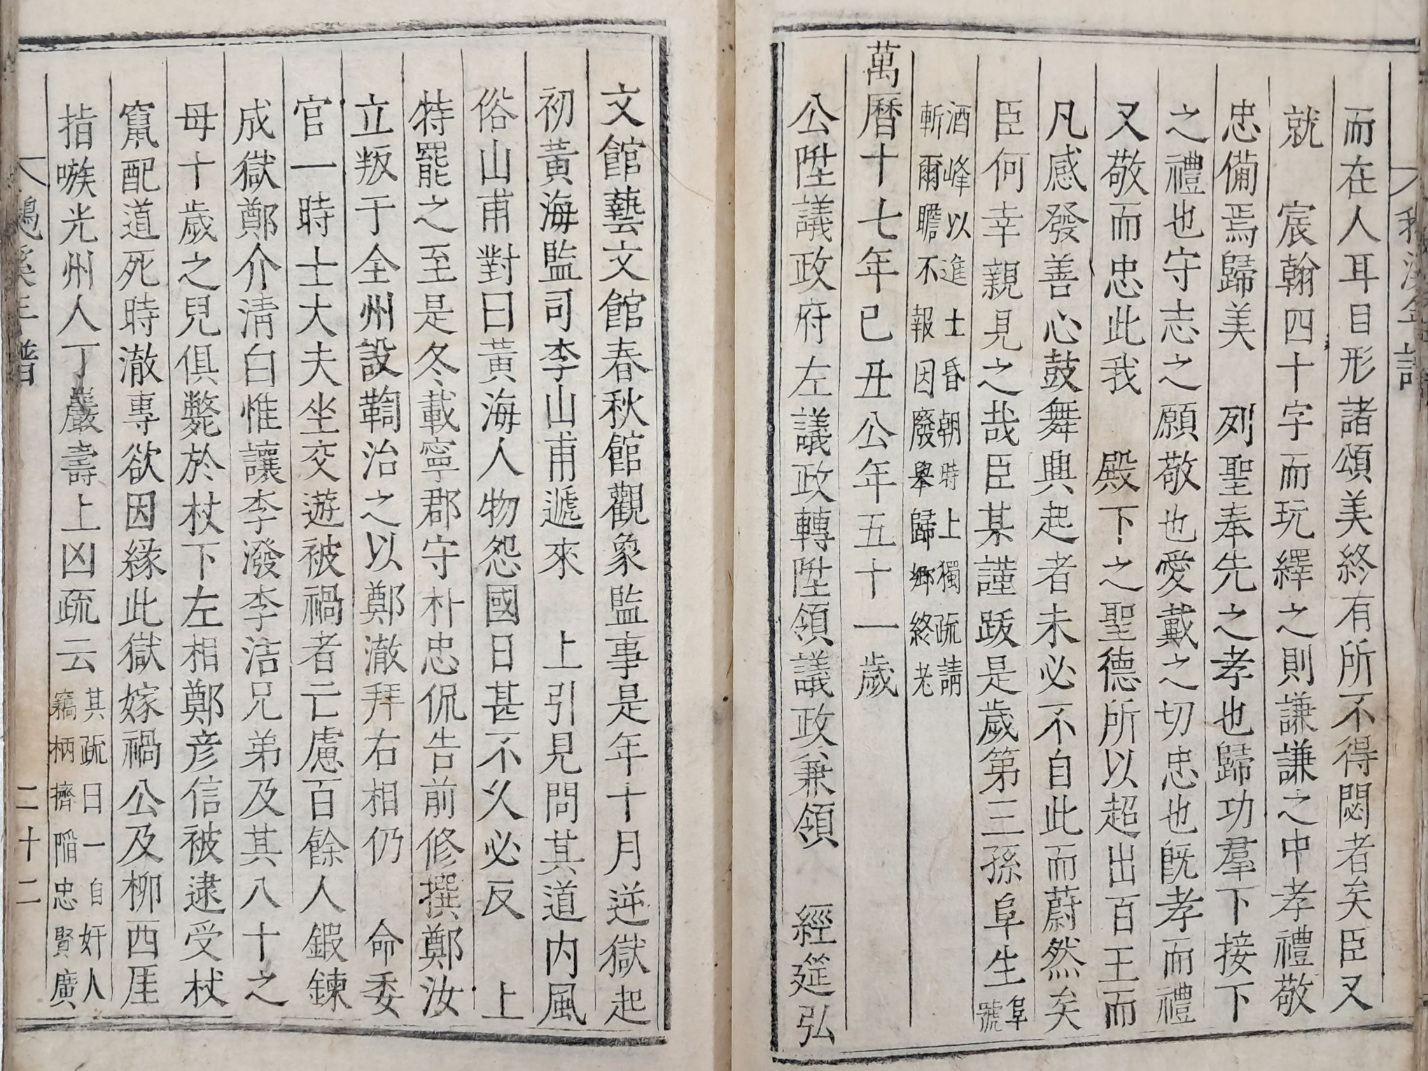 而在人耳目形諸頌美終有所不得悶者矣臣又
就　宸翰四十字而玩繹之則謙謙之中孝禮敬
忠備焉歸美　列聖奉先之孝也歸功羣下接下
之禮也守志之願敬也愛戴之切忠也旣孝而禮
又敬而忠此我　殿下之聖德所以超出百王而
凡感發善心鼓舞興起者未必不自此而蔚然矣
臣何幸親見之哉臣某謹跋是歲第三孫阜生
阜號
酒峰以進士昏朝時上獨疏請
斬爾瞻不報因廢擧歸鄕終老
萬曆十七年己丑公年五十一歲
公陞議政府左議政轉陞領議政兼領　經筵弘
文館藝文館春秋館觀象監事是年十月逆獄起
初黃海監司李山甫遞來　上引見問其道內風
俗山甫對曰黃海人物怨國日甚不久必反　上
特罷之至是冬載寧郡守朴忠侃告前修撰鄭汝
立叛于全州設鞫治之以鄭澈拜右相仍　命委
官一時士大夫坐交遊被禍者亡慮百餘人鍛鍊
成獄鄭介淸白惟讓李潑李洁兄弟及其八十之
母十歲之兒俱斃於杖下左相鄭彦信被逮受杖
竄配道死時澈專欲因緣此獄嫁禍公及柳西厓
指嗾光州人丁巖壽上凶疏云
其疏曰一自奸人
竊柄擠陷忠賢廣
二十二